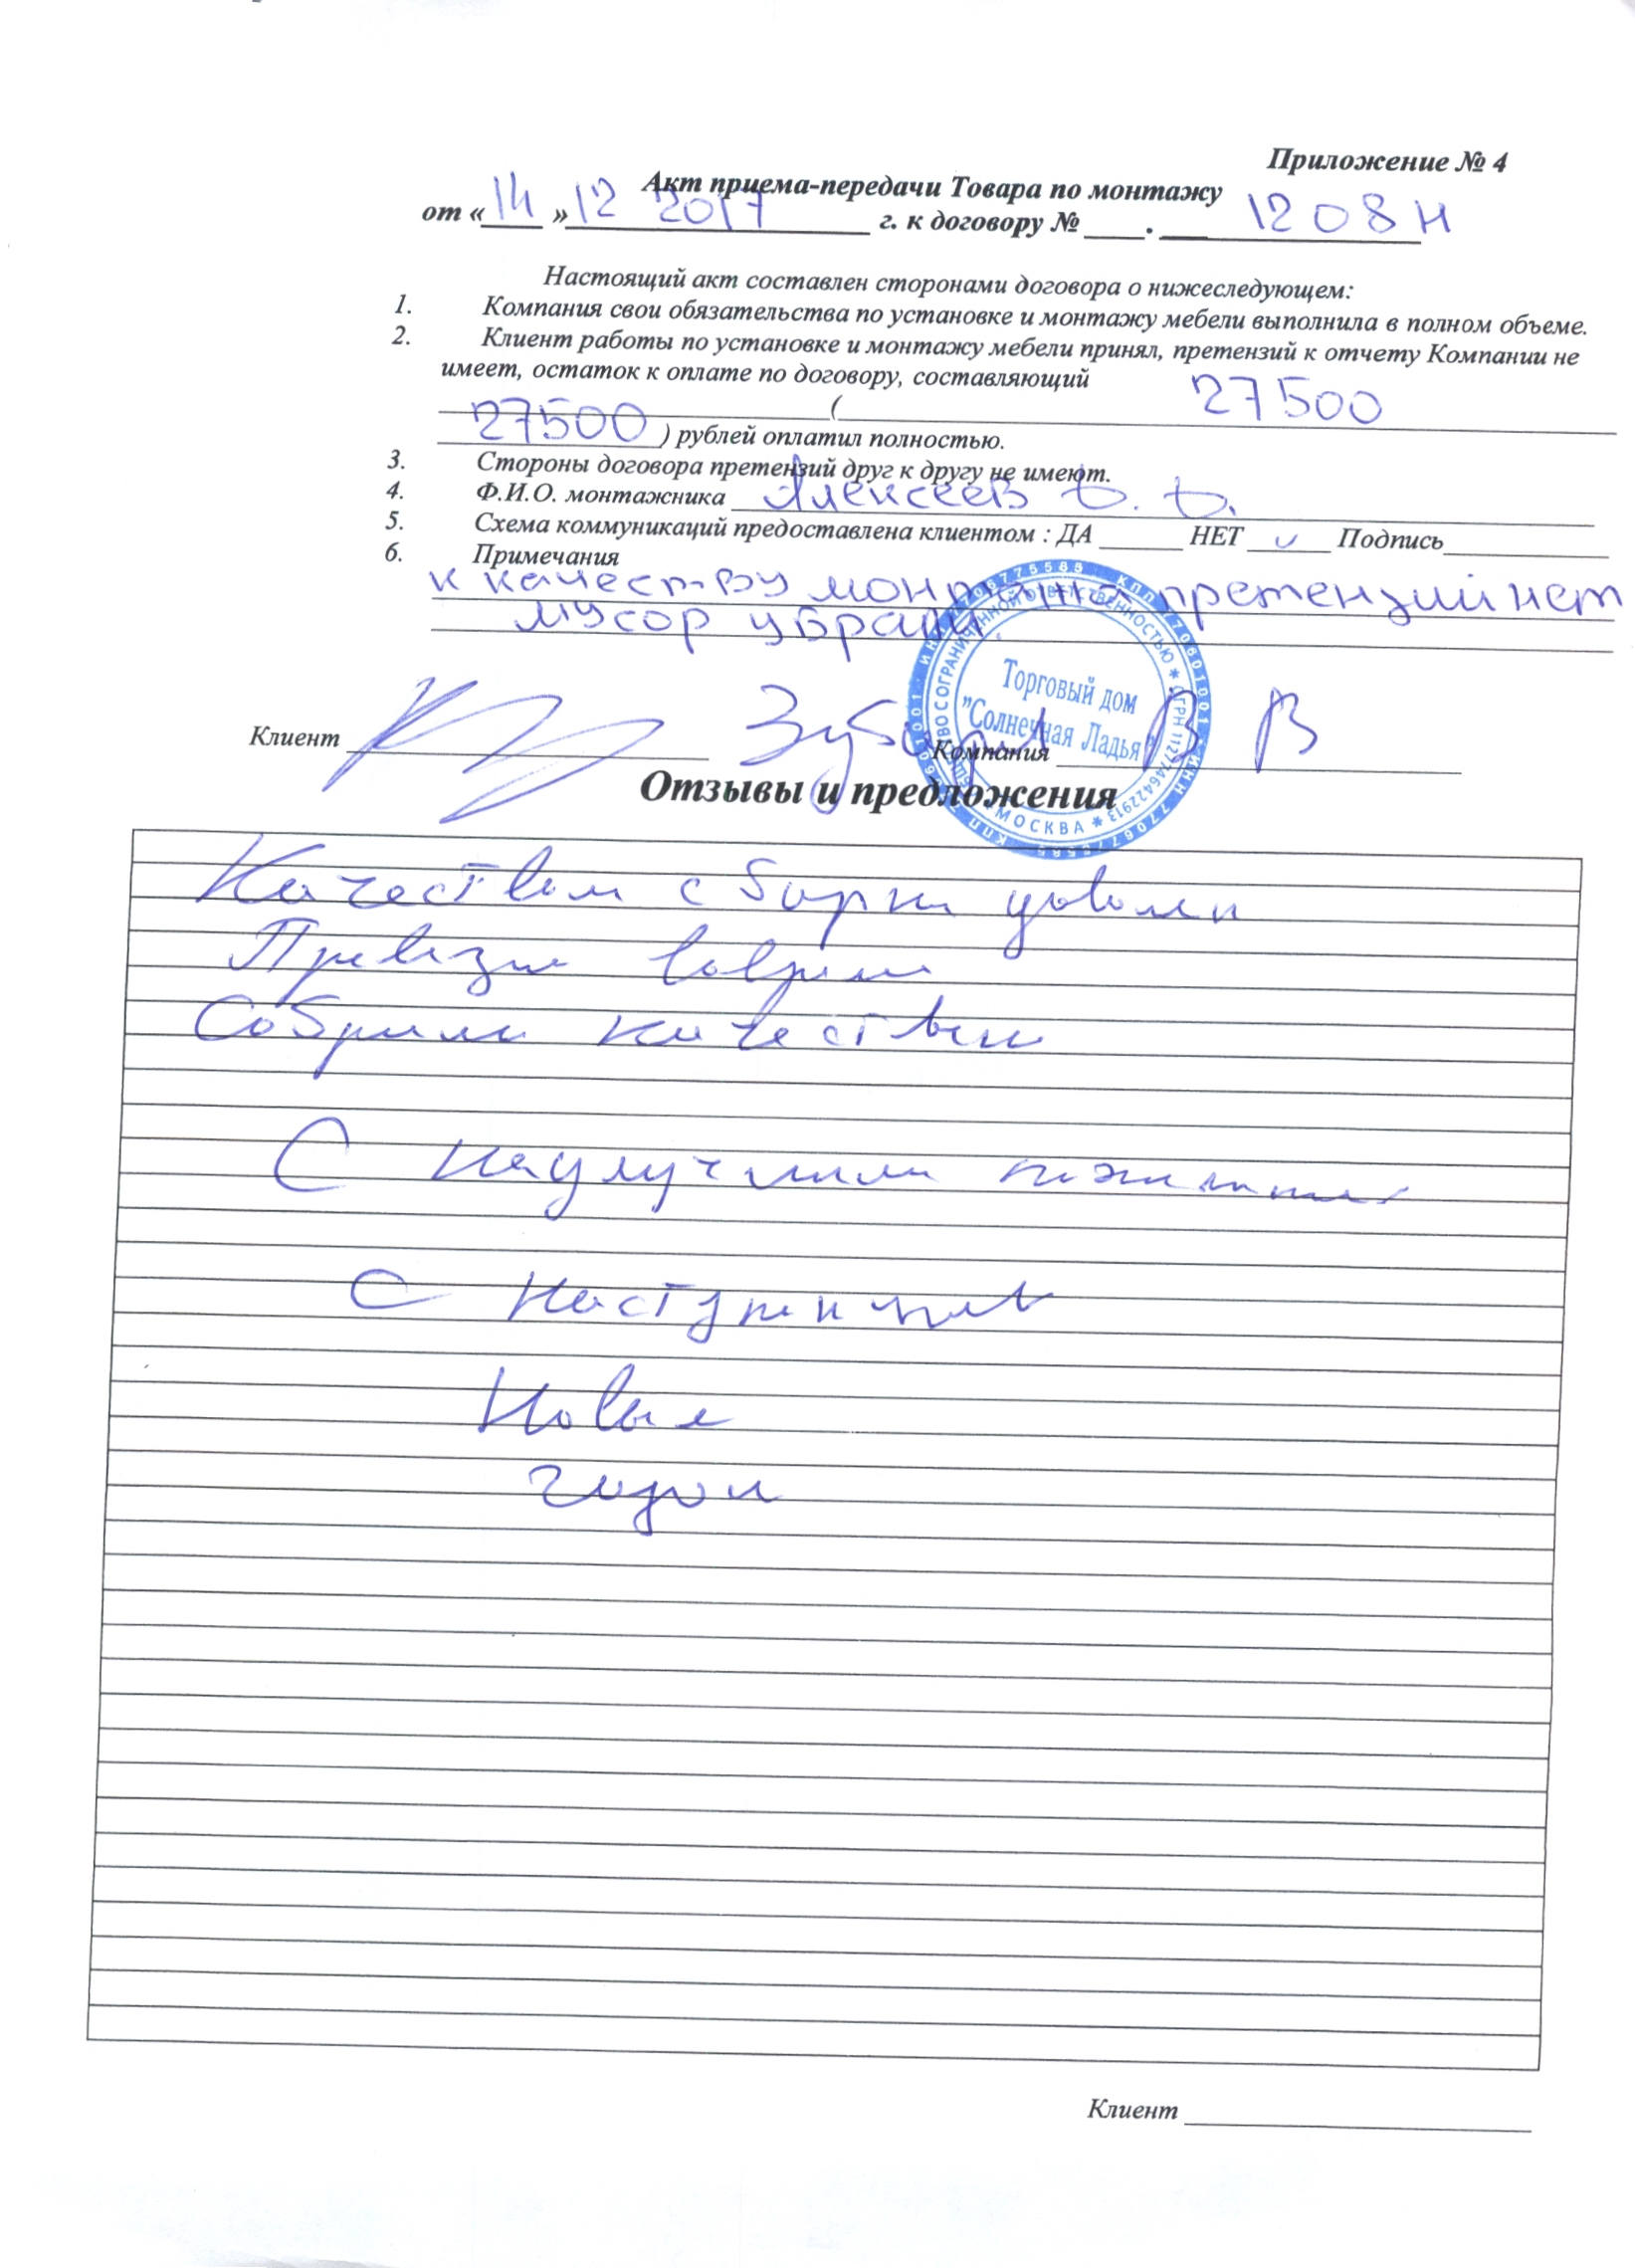 Приложение № 4
Акт приема-передачи Товара по монтажу
от «14» 12 2017 г. к договору № ____. ___ 1208Н
Настоящий акт составлен сторонами договора о нижеследующем:
1. Компания свои обязательства по установке и монтажу мебели выполнила в полном объеме.
2. Клиент работы по установке и монтажу мебели принял, претензий к отчету Компании не
имеет, остаток к оплате по договору, составляющий
( 27500
27500 ) рублей оплатил полностью.
3. Стороны договора претензий друг к другу не имеют.
4. Ф.И.О. монтажника Алексеев
5. Схема коммуникаций предоставлена клиентом : ДА ______ НЕТ ______ Подпись____________
6. Примечания
к качеству монтажа претензий нет
мусор убрали
Торговый дом
"Солнечная Ладья"
МОСКВА
Клиент Компания В В
Отзывы и предложения
Качеством сборки доволен
Привезли вовремя
Собрали качественно
С наилучшими пожеланиями
С наступающим
Новым
годом
Клиент